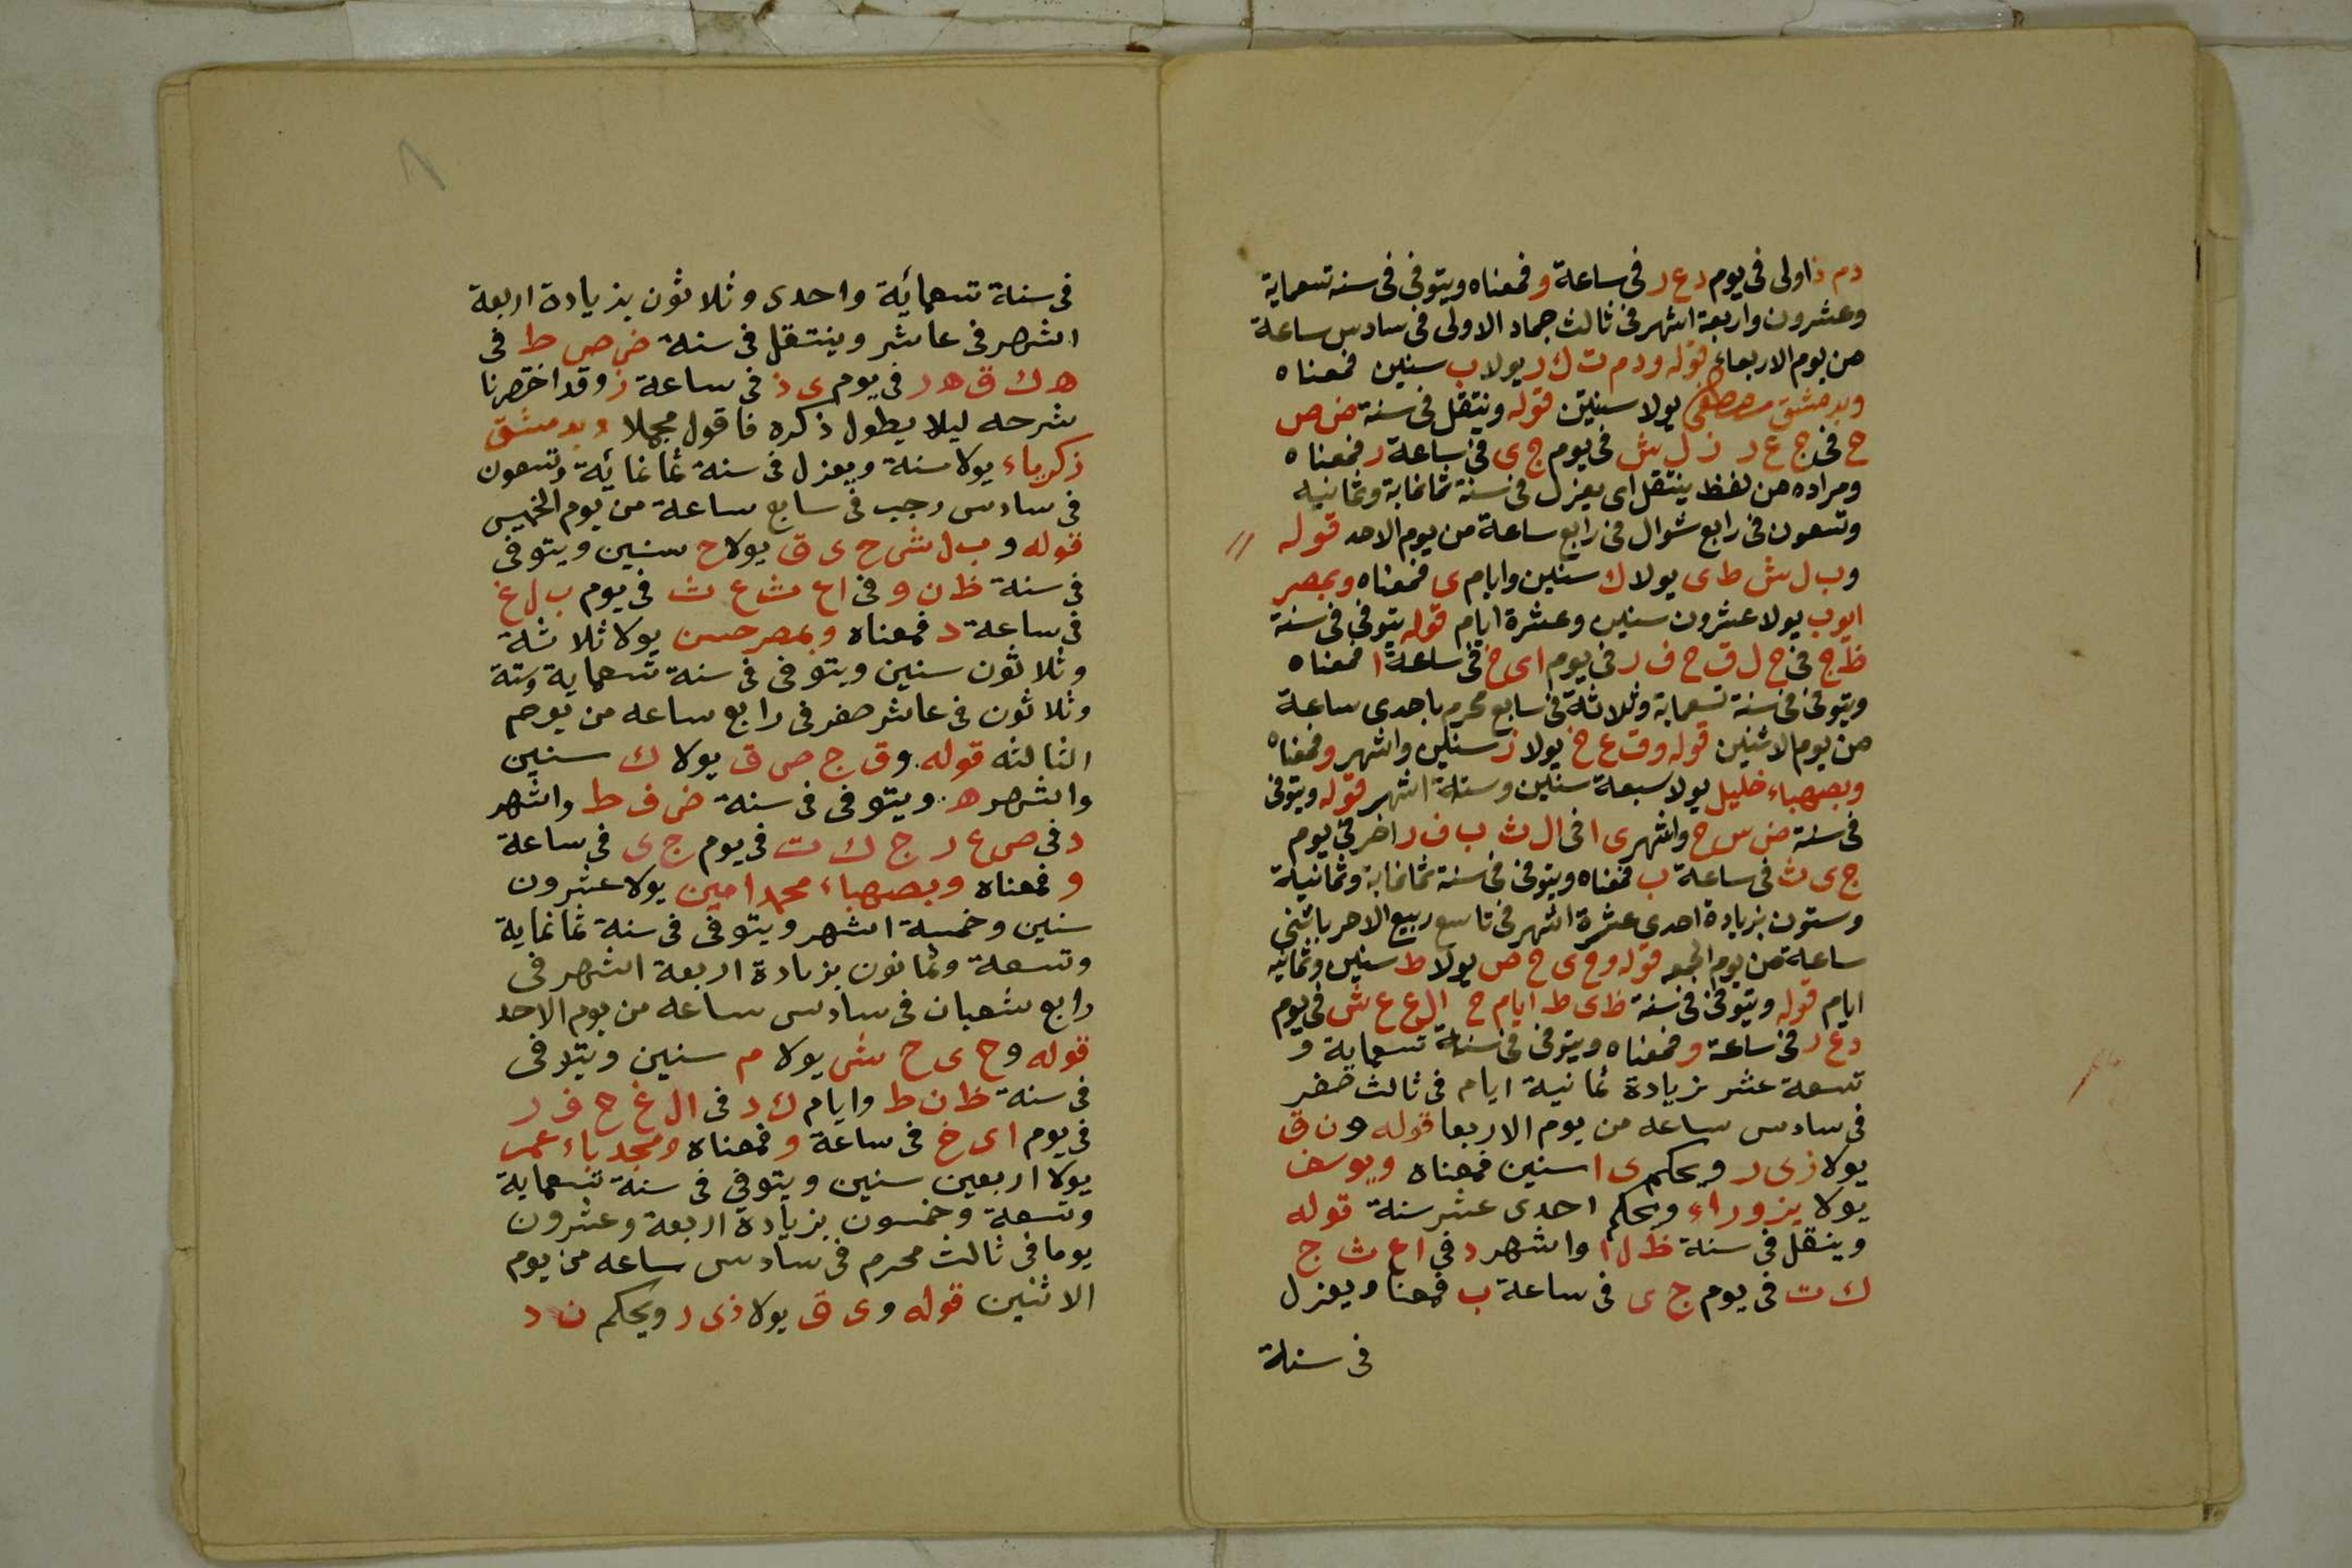 دم ذاولى فى يوم دع ر فى ساعة و فمعناه ويتوفى فى سنه تسعماية
وعشرون واربعة اشهر فى ثالث جماد الاولى فى سادس ساعة
من يوم الاربعاء قوله ودم ت ك ر يولا ب سنين فمعناه
وبدمشق مصطفى يولا سنتين قوله ونتقل فى سنة ض ص
ح فى ج ع ر ز ل ش فى يوم ج ى فى ساعة ر فمعناه
ومراده من لفظ ينتقل اى يعزل فى سنة ثمانماية وثمانيه
وتسعون فى رابع شوال فى رابع ساعة من يوم الاحد قوله
وب ل ش ط ى يولا ك سنين وايام ى فمعناه وبمصر
ايوب يولا عشرون سنين وعشرة ايام قوله يتوفى فى سنة
ظ ج فى ح ل ق ح ف ر فى يوم اى خ فى ساعة ا فمعناه
ويتوفى فى سنة تسعماية وثلاثة فى سابع محرم باحدى ساعة
من يوم الاثنين قوله وق ع خ يولا ز سنين واشهر و فمعناه
وبصهباء خليل يولا سبعة سنين وستة اشهر قوله ويتوفى
فى سنة ض س ح واشهر ى ا فى ال ث ب ف ر اخر فى يوم
ج ى ث فى ساعة ب فمعناه ويتوفى فى سنة ثمانماية وثمانية
وستون بزيادة احدى عشرة اشهر فى تاسع ربيع الاخر باثنى
ساعة من يوم الجمعه قوله وح ى ح ص يولا ط سنين وثمانيه
ايام قوله ويتوفى فى سنة ظ ى ط ايام ح ال ع ع ش فى يوم
دع ر فى ساعة و فمعناه ويتوفى فى سنة تسعماية و
تسعة عشر بزيادة ثمانية ايام فى ثالث صفر
فى سادس ساعه من يوم الاربعا قوله ون ق
يولا زى ر ويحكم ى ا سنين فمعناه ويوسف
يولا بزوراء ويحكم احدى عشر سنة قوله
وينقل فى سنة ظ ل ا واشهر د فى اع ث ج
ك ت فى يوم ج ى فى ساعة ب فمعناه ويعزل
فى سنة
فى سنة تسعمائة واحدى وثلاثون بزيادة اربعة
اشهر فى عاشر وينتقل فى سنة ض ص ط فى
ه ك ق ه ر فى يوم ى ذ فى ساعة ز وقد اختصرنا
شرحه ليلا يطول ذكره فاقول مجملا وبدمشق
زكرياء يولا سنة ويعزل فى سنة ثمانمائة وتسعون
فى سادس رجب فى سابع ساعة من يوم الخميس
قوله و ب ل ش ح ى ق يولا ح سنين ويتوفى
فى سنة ظ ن و فى اع ث ع ث فى يوم ب ل غ
فى ساعة د فمعناه وبمصر حسن يولا ثلاثة
وثلاثون سنين ويتوفى فى سنة تسعماية وستة
وثلاثون فى عاشر صفر فى رابع ساعه من يوم
الثالثه قوله وق ج ص ق يولا ك سنين
واشهر ه ويتوفى فى سنة ض ف ط واشهر
د فى ص ع ر ج ك ت فى يوم ج ى فى ساعة
و فمعناه وبصهباء محمد امين يولا عشرون
سنين وخمسة اشهر ويتوفى فى سنة ثمانماية
وتسعة وثمانون بزيادة اربعة اشهر فى
رابع شعبان فى سادس ساعه من يوم الاحد
قوله وح ى ح ش يولا م سنين ويتوفى
فى سنة ظ ن ط وايام ك د فى ال غ ح ف ر
فى يوم اى خ فى ساعة و فمعناه ومجدباء عمر
يولا اربعين سنين ويتوفى فى سنة تسعماية
وتسعة وخمسون بزيادة اربعة وعشرون
يوما فى ثالث محرم فى سادس ساعه من يوم
الاثنين قوله وى ق يولا ذى ر ويحكم ن د